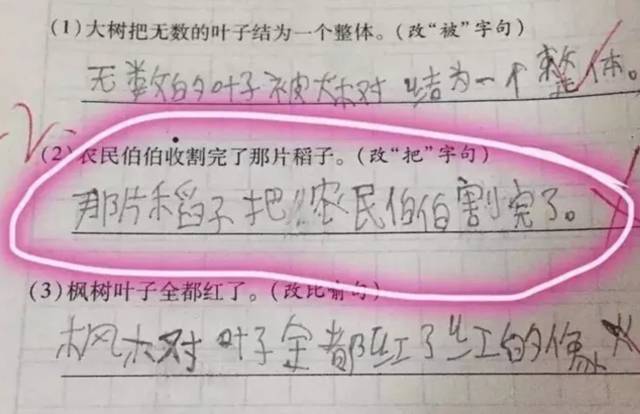 (1)大树把无数的叶子结为一个整体。(改“被”字句)
无数的叶子被大树结为一个整体。
-2
(2)农民伯伯收割完了那片稻子。(改“把”字句)
那片稻子把农民伯伯割完了。
(3)枫树叶子全都红了。(改比喻句)
枫树叶子全都红了红的像